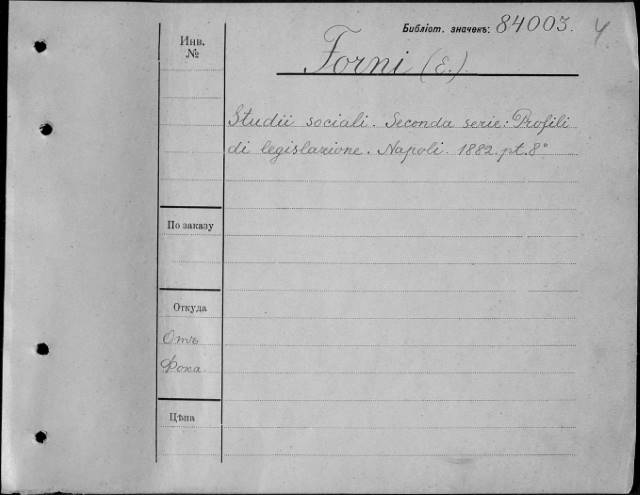 Библіот. значекъ: 84003. 4
Инв. №
Forni (E.)
Studii sociali. Seconda serie: Profili
di legislazione. Napoli. 1882. pt. 8°
По заказу
Откуда
Отъ
Фока
Цѣна